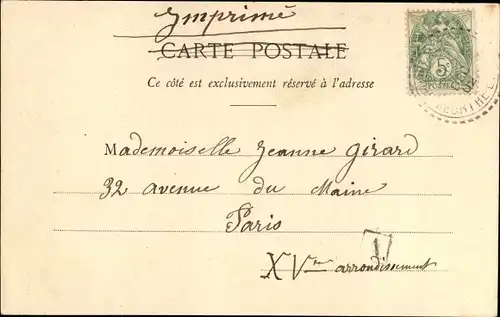 Imprimé
CARTE POSTALE
Ce côté est exclusivement réservé à l'adresse
5c
POSTES
MEURTHE
Mademoiselle Jeanne Girard
32 avenue du Maine
Paris
T
XVme arrondissement